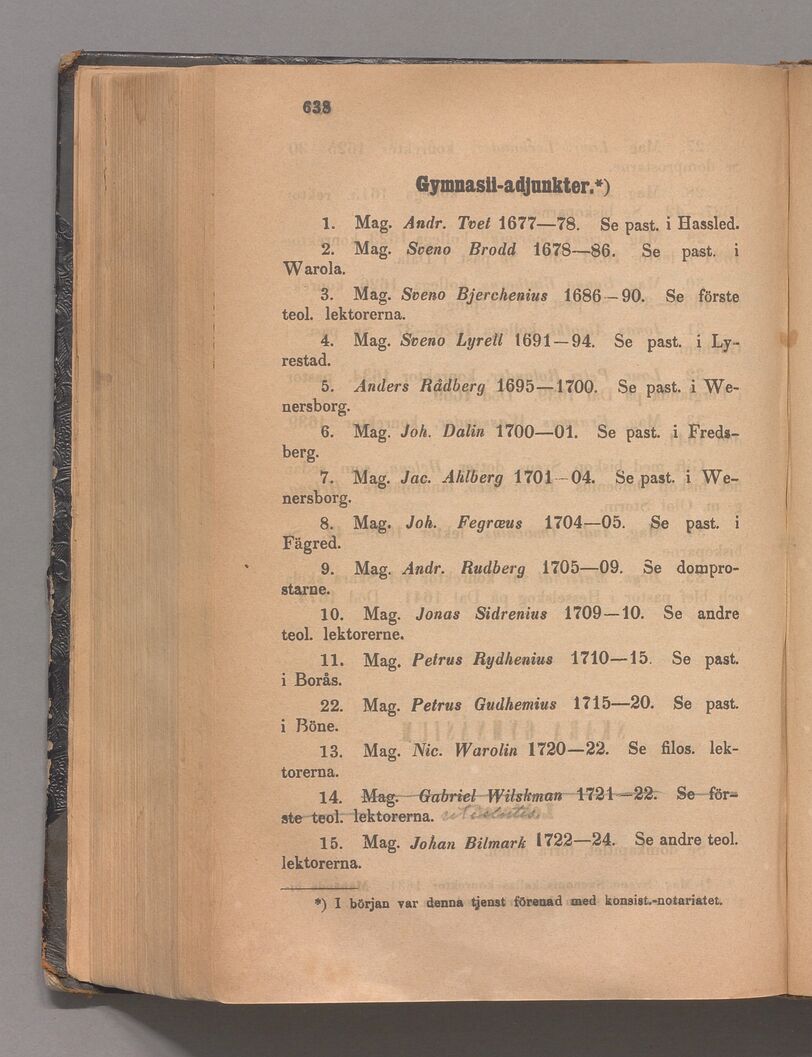 638
Gymnasii-adjunkter.*)
1. Mag. Andr. Tvet 1677—78. Se past. i Hassled.
2. Mag. Sveno Brodd 1678—86. Se past. i
Warola.
3. Mag. Sveno Bjerchenius 1686—90. Se förste
teol. lektorerna.
4. Mag. Sveno Lyrell 1691—94. Se past. i Ly-
restad.
5. Anders Rådberg 1695—1700. Se past. i We-
nersborg.
6. Mag. Joh. Dalin 1700—01. Se past. i Freds-
berg.
7. Mag. Jac. Ahlberg 1701—04. Se past. i We-
nersborg.
8. Mag. Joh. Fegræus 1704—05. Se past. i
Fägred.
9. Mag. Andr. Rudberg 1705—09. Se dompro-
starne.
10. Mag. Jonas Sidrenius 1709—10. Se andre
teol. lektorerne.
11. Mag. Petrus Rydhenius 1710—15. Se past.
i Borås.
22. Mag. Petrus Gudhemius 1715—20. Se past.
i Böne.
13. Mag. Nic. Warolin 1720—22. Se filos. lek-
torerna.
14. Mag. Gabriel Wilskman 1721—22. Se för-
ste teol. lektorerna.
15. Mag. Johan Bilmark 1722—24. Se andre teol.
lektorerna.
*) I början var denna tjenst förenad med konsist.-notariatet.